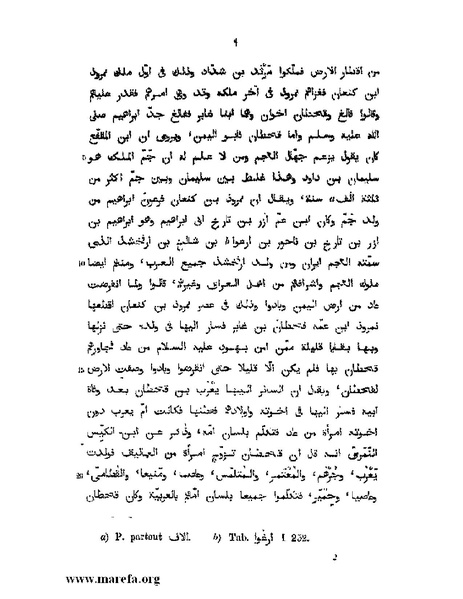 ٩
من اقطار الارض فملّكوا مَرْثَد بن شدّاد وذلك فى اوّل ملك نمرود
ابن كنعان فغزاهم نمرود فى آخر ملكه وقد وهى امرهم فقدر عليهم
وقالوا فالغ وقحطان اخوان وهما ابنا عابر ففالغ جدّ ابراهيم صلى
الله عليه وسلم واما قحطان فابو اليمن، ويروى ان ابن المقفّع
كان يقول يزعم جهّال العجم ومن لا علم له ان جَمّ الملك هو
سليمان بن داود وهذا غلط بين سليمان وبين جمّ اكثر من
ثلثة الف a سنة، ويقال ان نمرود بن كنعان فرعون ابراهيم من
ولد جَمّ وكان ابن عمّ آزر بن تارخ ابى ابراهيم وهو ابراهيم بن
آزر بن تارخ بن ناحور بن ارغوا b بن شالخ بن ارفخشد الذى
سمّته العجم ايران ومن ولد ارفخشد جميع العرب، ومنهم ايضا 10
ملوك العجم واشرافهم من اهل العراق وغيرها، قالوا ولما انقرضت
عاد من ارض اليمن وبادوا وذلك فى عصر نمرود بن كنعان اقتطعها
نمرود ابن عمّه قحطان بن عابر فسار اليها فى ولده حتى نزلها
وبها بقايا قليلة ممّن آمن بهود عليه السلام من عاد فجاورهم
قحطان بها فلم يكن الّا قليلا حتى انقرضوا وبادوا وصفت الارض 15
لقحطان، ويقال ان السائر اليها يَعْرُب بن قحطان بعد وفاة
ابيه فسار اليها فى اخوته واولاده فقطنها فكانت امّ يعرب دون
اخوته امرأة من عاد فتكلّم بلسان امّه، وذُكر عن ابن الكيِّس
النَّمَرىّ انه قال ان قحطان تزوّج امرأة من العماليق فولدت
يَعْرُب، وجُرْهُم، والمُعْتَمر، والمُتلمّس، وعاصما، ومنيعا، والقُطامىّ، 20
وعاصيا، وحِمْيَر، فتكلّموا جميعا بلسان امّهم بالعربيّة وكان قحطان
a) P. partout الاف. b) Tab. ارغوا I 252.
2
www.marefa.org